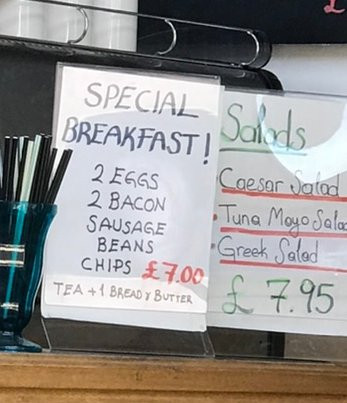 £
SPECIAL
BREAKFAST!
2 EGGS
2 BACON
SAUSAGE
BEANS
CHIPS £7.00
TEA + 1 BREAD & BUTTER
Salads
Caesar Salad
• Tuna Mayo Salad
• Greek Salad
£ 7.95